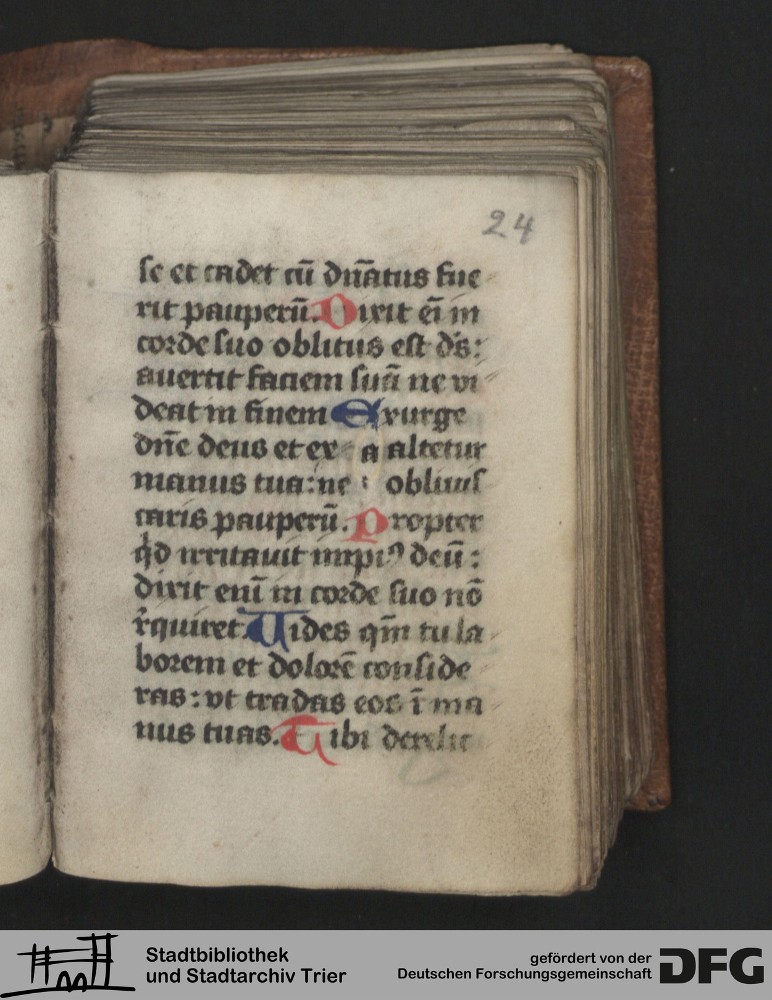 24
se et cadet cū dn̄atus fue
rit pauperū. Dixit eī in
corde suo oblitus est d̄s:
auertit faciem suā ne vi
deat in finem Exurge
dn̄e deus et ex a altetur
manus tua: ne obliuis
caris pauperū. Propter
qd̄ irritauit impiꝰ deū:
dixit enī in corde suo nō
r̄quiret Uides qm̄ tu la
borem et dolorē conside
ras: vt tradas eos ī ma
nus tuas. Tibi derelic
Stadtbibliothek
und Stadtarchiv Trier
gefördert von der
Deutschen Forschungsgemeinschaft
DFG